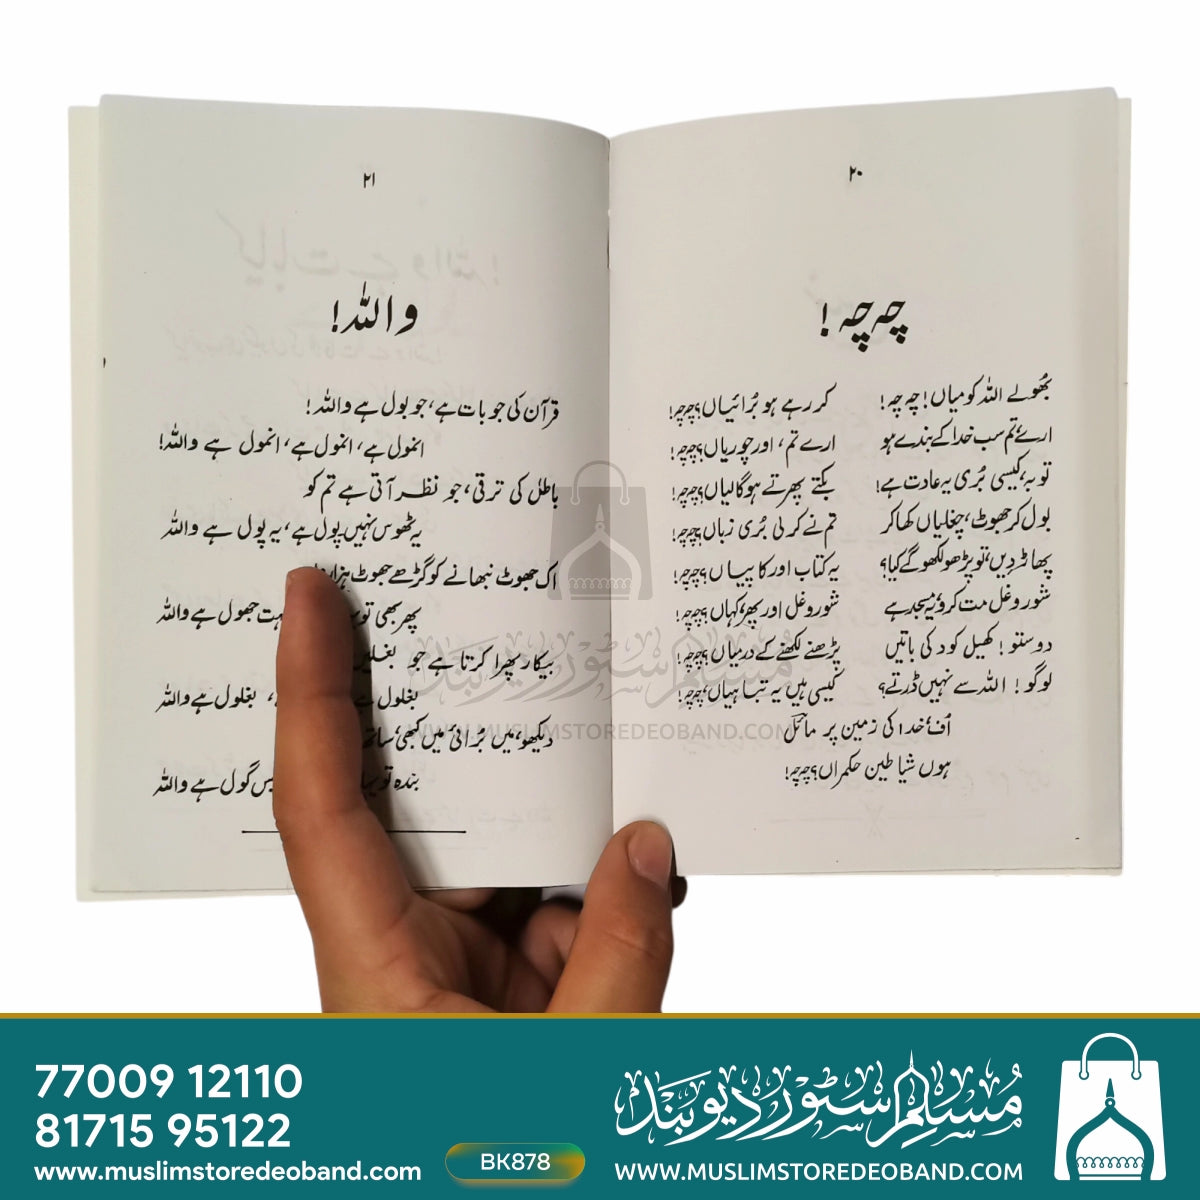 ۲۰
چہ چہ !
بھولے اللہ کو میاں! چہ چہ! کر رہے ہو بُرائیاں؟ چہ چہ!
ارے تم سب خدا کے بندے ہو ارے تم، اور چوریاں؟ چہ چہ!
توبہ، کیسی بُری یہ عادت ہے! بکتے پھرتے ہو گالیاں؟ چہ چہ!
بول کر جھوٹ، چغلیاں کھا کر تم نے کر لی بُری زباں؟ چہ چہ!
پھاڑ دیں، تو پڑھو لکھو گے کیا؟ یہ کتاب اور کاپیاں؟ چہ چہ!
شور و غل مت کرو، یہ مسجد ہے شور و غل اور پھر، کہاں؟ چہ چہ!
دوستو! کھیل کود کی باتیں پڑھنے لکھنے کے درمیاں؟ چہ چہ!
لوگو! اللہ سے نہیں ڈرتے؟ کیسی ہیں یہ تباہیاں، چہ چہ!
اُف، خدا کی زمین پر مائلؔ
ہوں شیاطین حکمراں؟ چہ چہ!
۲۱
واللہ!
قرآن کی جو بات ہے، جو بول ہے واللہ!
انمول ہے، انمول ہے، انمول ہے واللہ!
باطل کی ترقی، جو نظر آتی ہے تم کو
یہ ٹھوس نہیں پول ہے، یہ پول ہے واللہ
اک جھوٹ نبھانے کو گڑھے جھوٹ ہزار
پھر بھی تو جھول ہے واللہ
بیکار پھرا کرتا ہے جو بغلیں
بغلول ہے بغلول ہے واللہ
دیکھو، میں بُرائی میں کبھی ساتھ
بندہ تو گول ہے واللہ
مسلم سٹور دیوبند
WWW.MUSLIMSTOREDEOBAND.COM
77009 12110
81715 95122
www.muslimstoredeoband.com
BK878
مسلم سٹور دیوبند
WWW.MUSLIMSTOREDEOBAND.COM